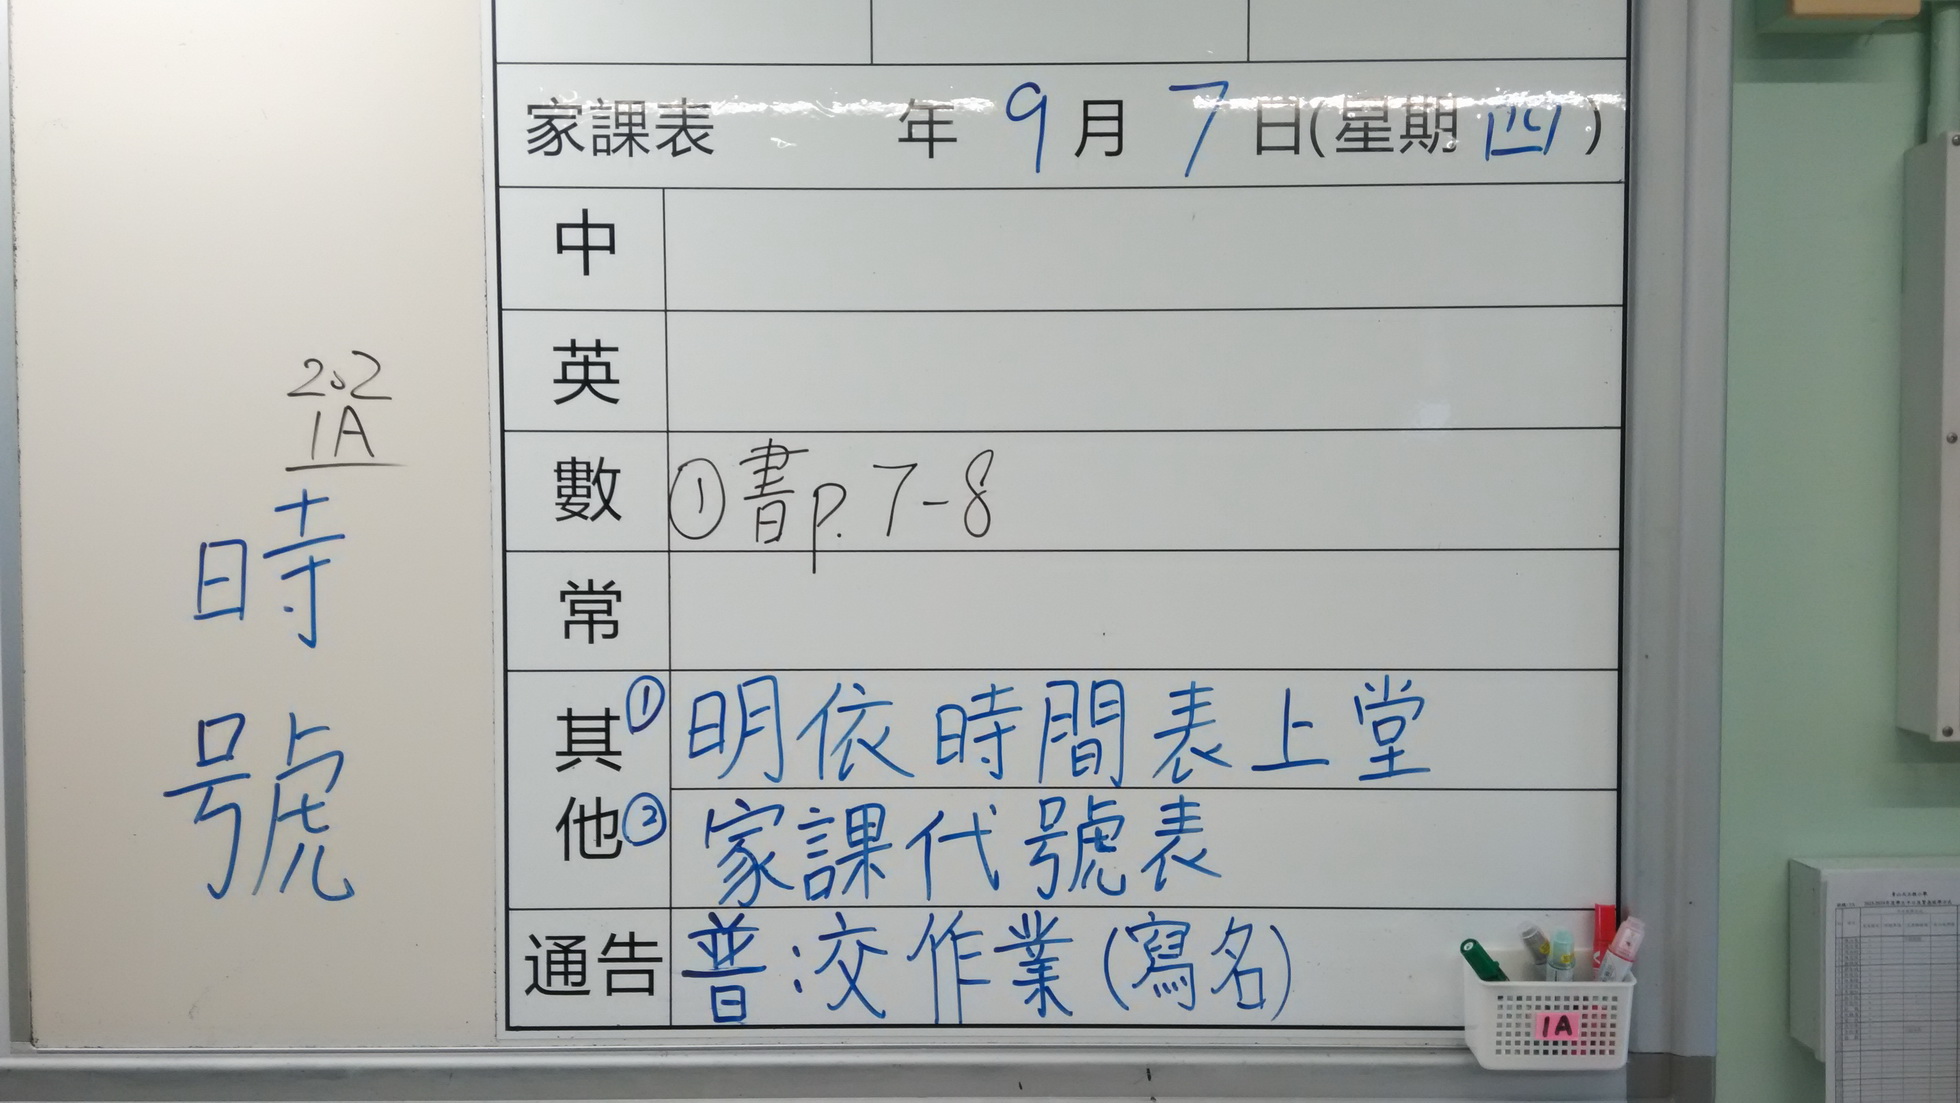 202
1A
時
號
家課表 年 9 月 7 日(星期 四)
中
英
數 ①書p.7-8
常
其他 ①明依時間表上堂
②家課代號表
通告 普:交作業(寫名)
1A